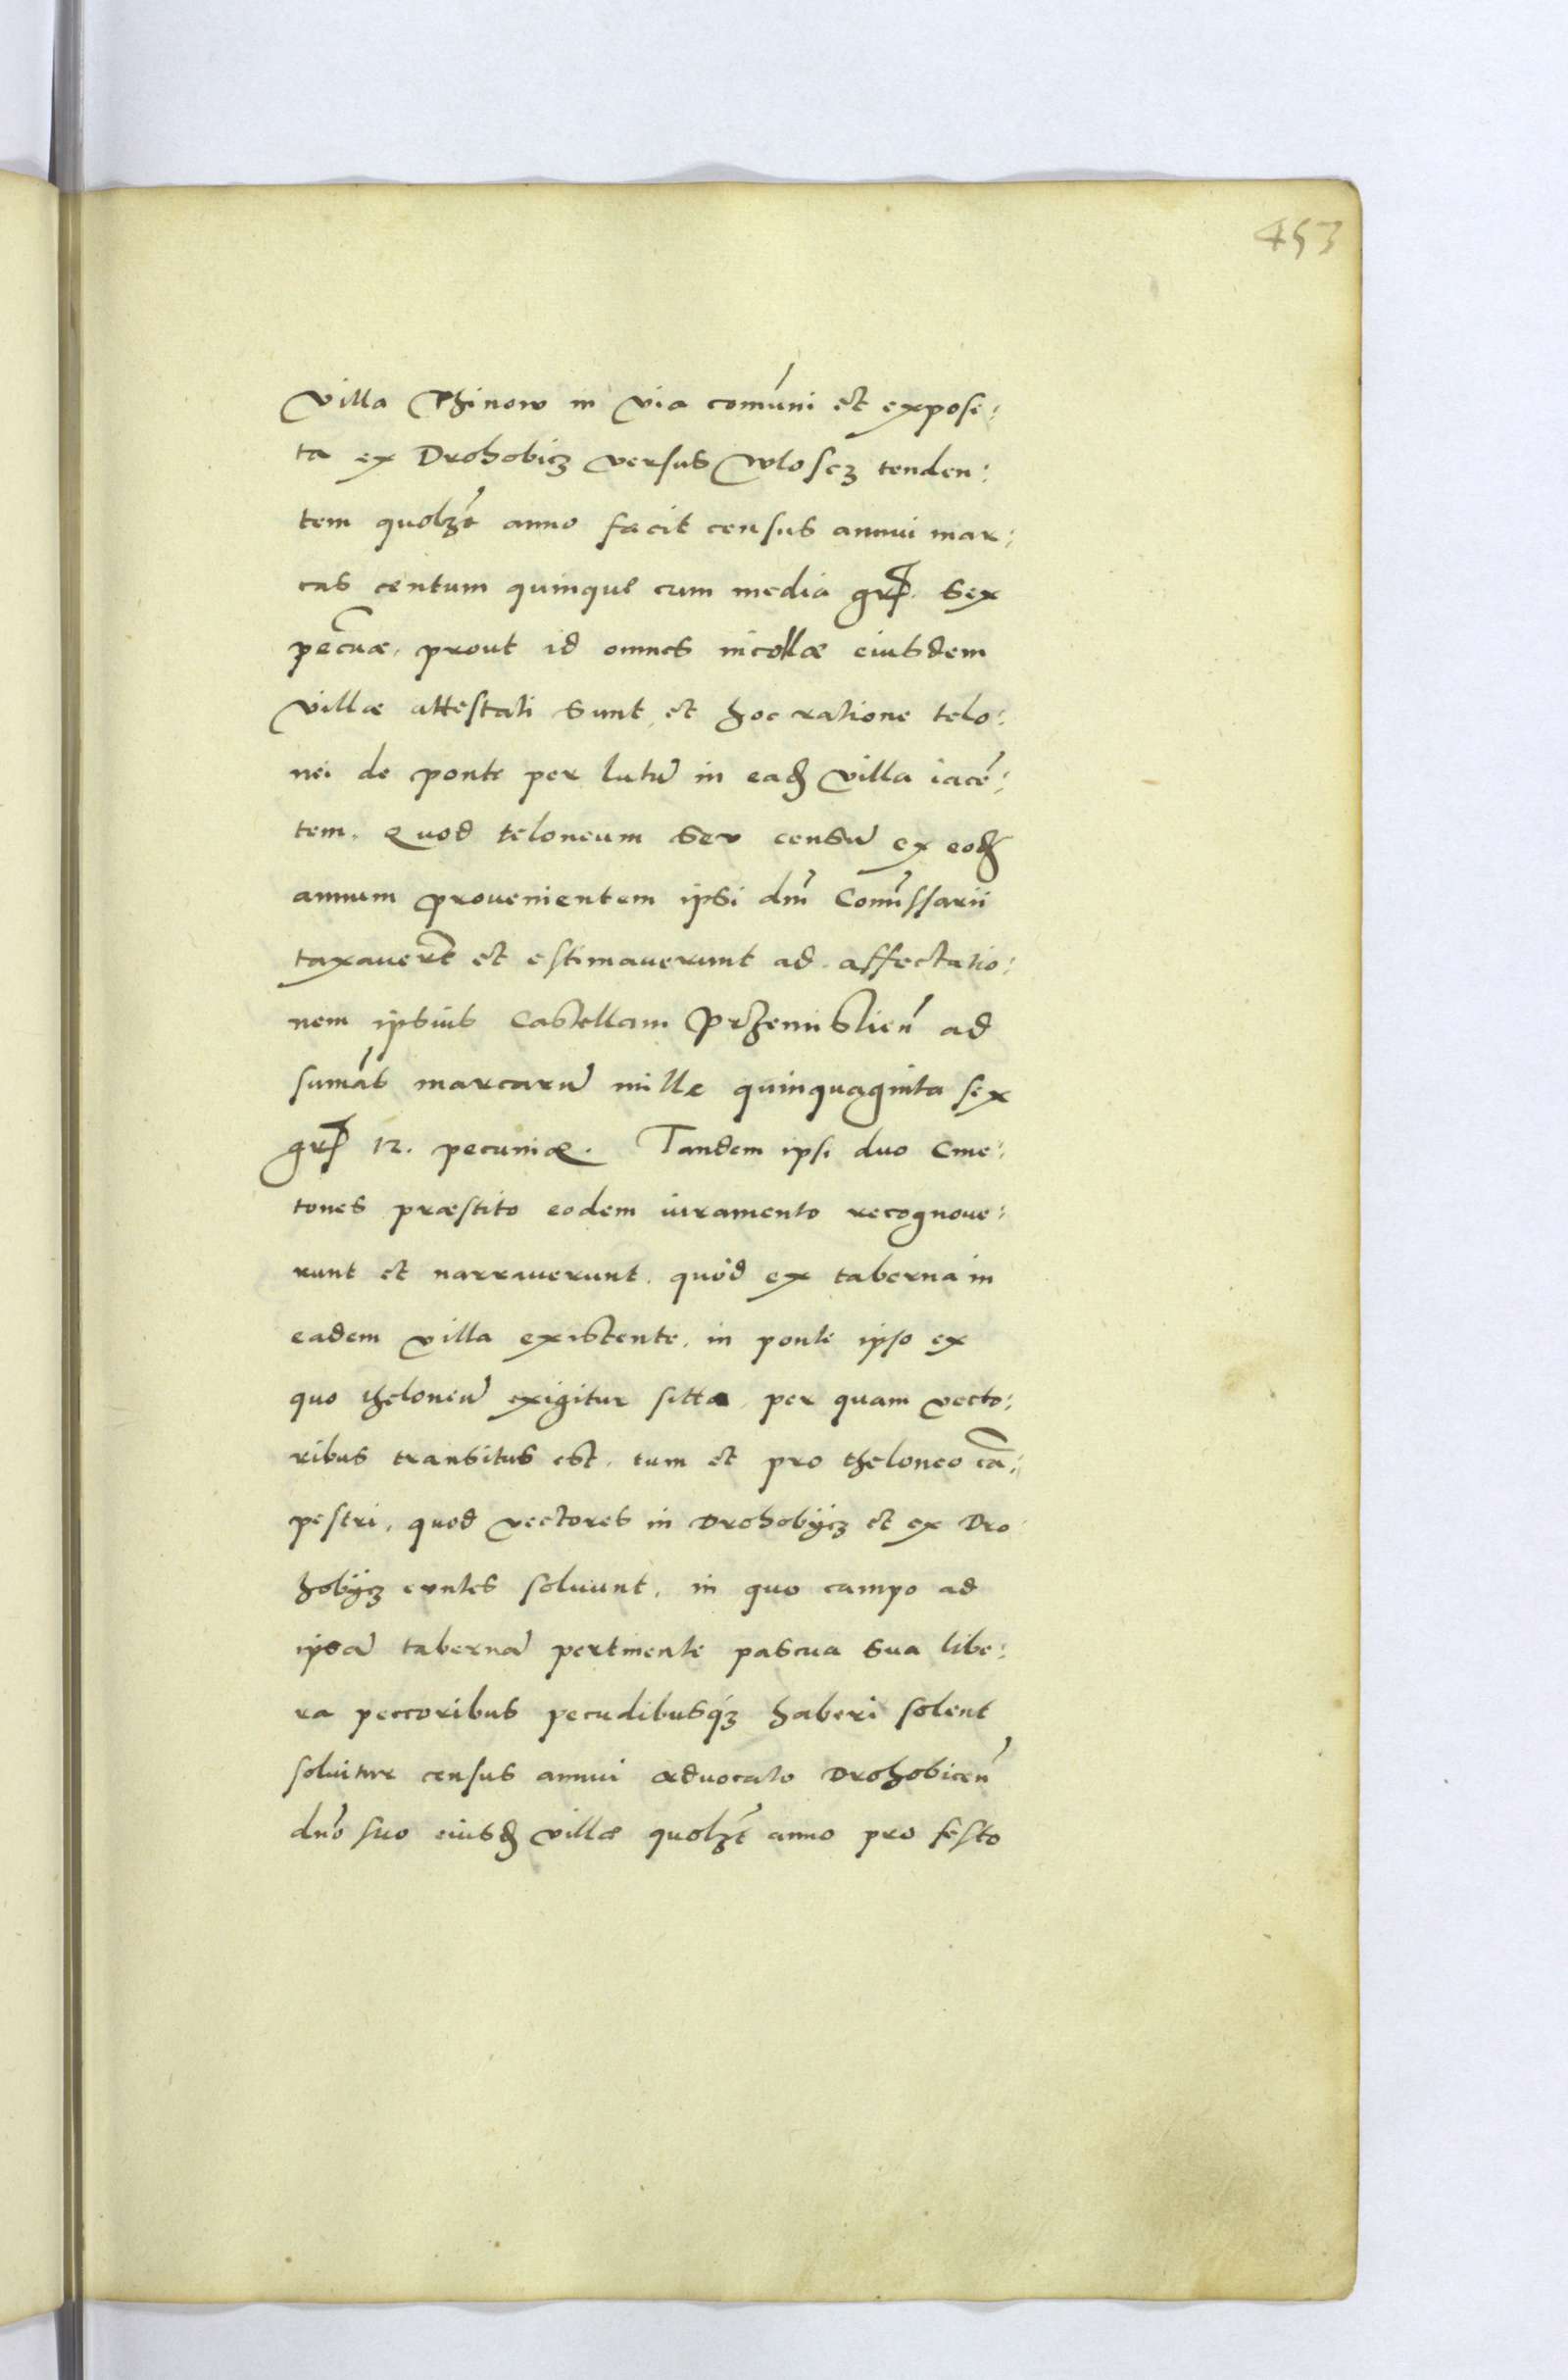 453
Villa Rhinow in via com̃uni et expose:
ta ex Drohobicz versus Wloscz tenden:
tem quolzt anno facit census annui mar:
cas centum quinque cum media gr. sex
pecuæ, prout id omnes incollæ eiusdem
villæ attestati sunt, et hoc ratione telo:
nei de ponte per lutũ in eadꝫ villa iacẽ:
tem. Quod teloneum seu censũ ex eodꝫ
annum prouenientem ipsi dnĩ Comissarii
taxauert et estimauerunt ad affectatio:
nem ipsius Castellani Przemislien̄ ad
sumas marcarũ mille quinquaginta sex
gr 12. pecuniæ. Tandem ipsi duo Cme:
tones præstito eodem iuramento recognoue:
runt et narrauerunt, quòd ex taberna in
eadem villa existente, in ponte ipso ex
quo theloneũ exigitur sitta, per quam vecto:
ribus transitus est, tum et pro theloneo cã:
pestri, quod vectores in Drohobÿcz et ex Dro
hobÿcz euntes soluunt, in quo campo ad
ipsã tabernã pertinente pascua sua libe:
ra peccoribus pecudibusqꝫ haberi solent
soluitur census annui aduocato Drohobicen̄
dnõ suo eiusdꝫ villæ quolzt anno pro festo